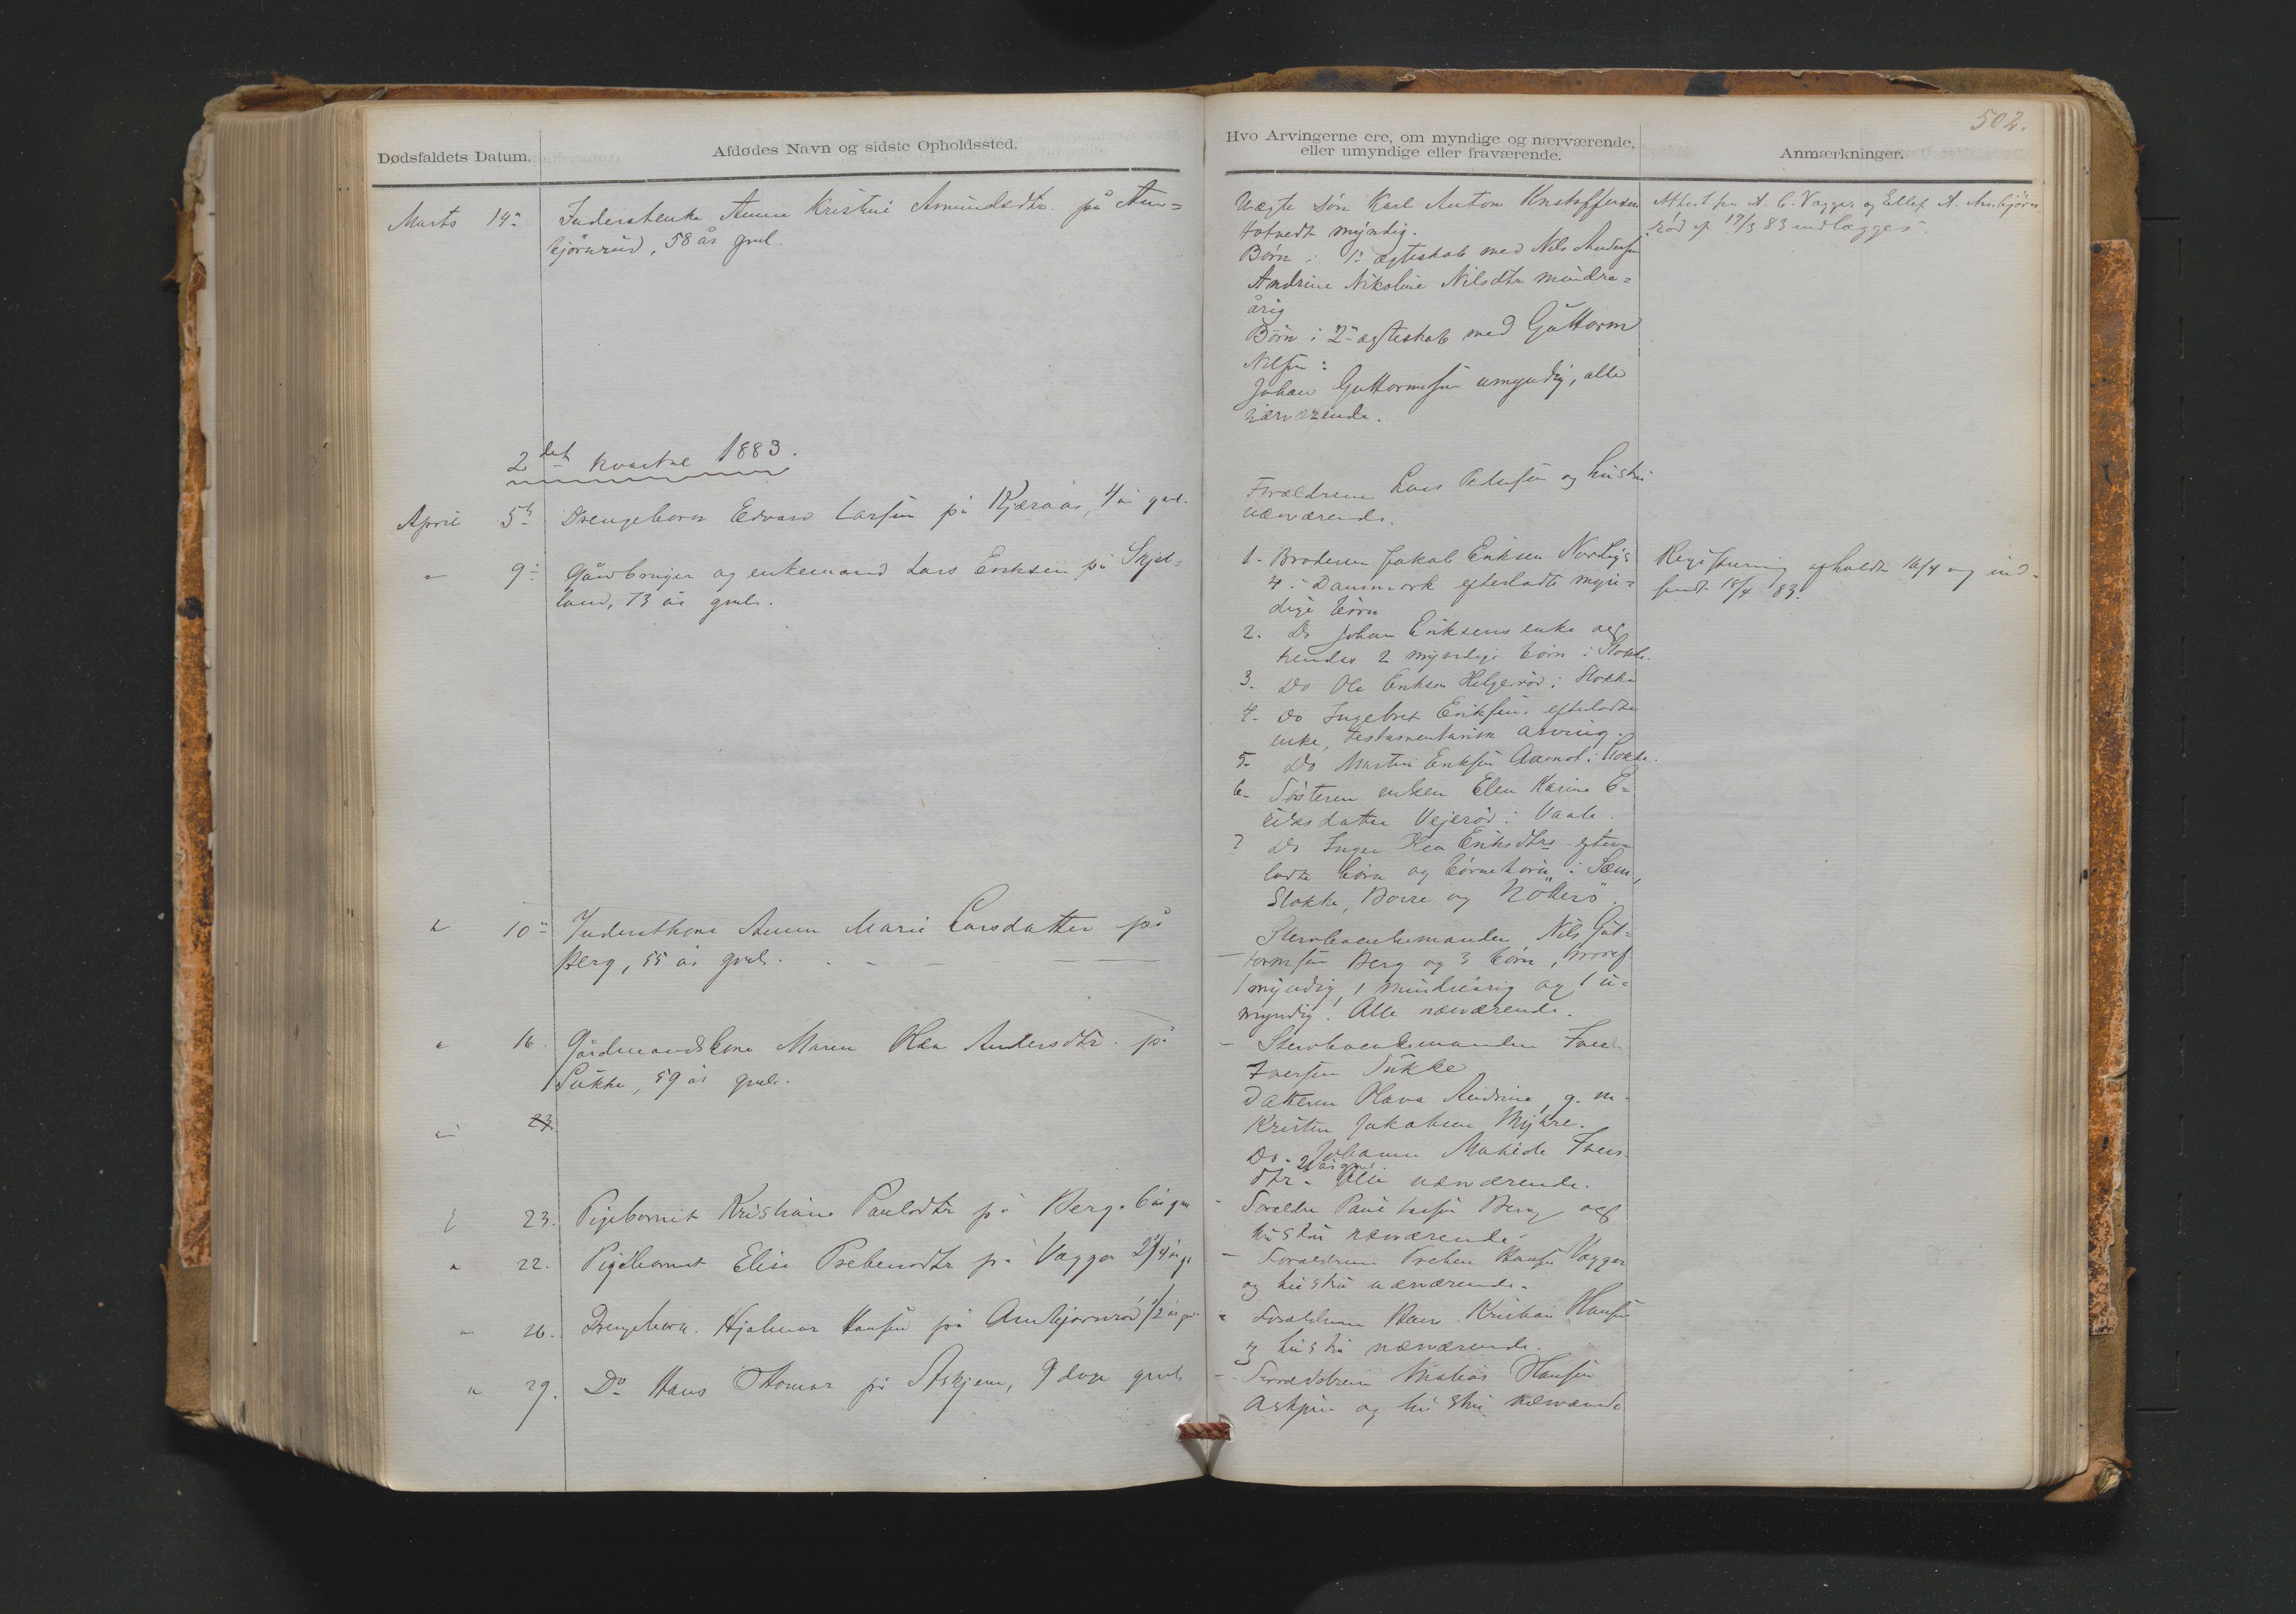 502.
Dødsfaldets Datum.
Afdødes Navn og sidste Opholdssted.
Hvo Arvingerne ere, om myndige og nærværende,
eller umyndige eller fraværende.
Anmærkninger.
Marts 14
Inderstenke Anne Kristine Amundsdtr. på Arn=
bjørnrud, 58 år gml.
Uægte Søn Karl Anton Kristoffersen
myndig.
Børn i 1 ægteskab med Nils Andersen
Andrine Nikoline Nilsdtr mindre=
årig
Børn i 2 ægteskab med Guttorm
Nilsen:
Johan Guttormsen umyndig, alle
nærværende.
Attest fra A. C. Vagger og Ellef A. Arnbjørn
rød af 17/3 83 indlægges.
2det kvartal 1883.
April 5
Drengebarn Edvard Larsen på Kjæraas, 4 år gml.
Forældrene Lars Pedersen og hustru
nærværende.
" 9
Gårdbruger og enkemand Lars Eriksen på Skjel=
land, 73 år gml.
1. Broderen Jakob Eriksen
4 i Danmark efterladte myn=
dige børn
2. Do Johan Eriksens enke og
hendes 2 myndige børn i Stokke.
3. Do Ole Eriksen Helgerød i Stokke
4. Do Ingebret Eriksens efterladte
enke, testamentarisk arving.
5. Do Martin Eriksen Aamot i Stokke.
6. Søsteren enken Elen Karine E=
riksdatter Vejerød i Vaale.
7 Do Inger Eriksdtrs efter=
ladte børn og børnebørn i Sem,
Stokke, Borre og Nøtterø.
Registrering afholdt 16/4 og ind=
sendt 18/4 83.
" 10
Inderstkone Anne Marie Larsdatter på
Berg, 55 år gml.
Stervboenkemanden Nils Gut=
tormsen Berg og 3 børn, hvoraf
1 myndig, 1 mindreårig og 1 u=
myndig. Alle nærværende.
" 16.
Gårdmandskone Maren Andersdtr. på
Sukke, 59 år gml.
Stervboenkemanden Iver
Iversen Sukke
Datteren Andrine, g. m.
Kristen Jakobsen Myhre.
Do Johanne Matilde Ivers
dtr. 21 år gml. Alle nærværende.
" 23
" 23.
Pigebarnet Kristiane Paulsdtr på Berg. 6 år gml
Forældre Paul Berg og
hustru nærværende
" 22.
Pigebarnet Elise Prebensdtr på Vagger 2 1/4 år gl
Forældrene Preben Hansen Vagger
og hustru nærværende.
" 26.
Drengebarn. Hjalmar Hansen på Arnbjørnrød 1/2 år gml
Forældrene Hans Kristian Hansen
og hustru nærværende.
" 29.
Do Hans Thomas på Askjem, 9 dage gml
Forældrene Matias Hansen
Askjem og hustru nærværende